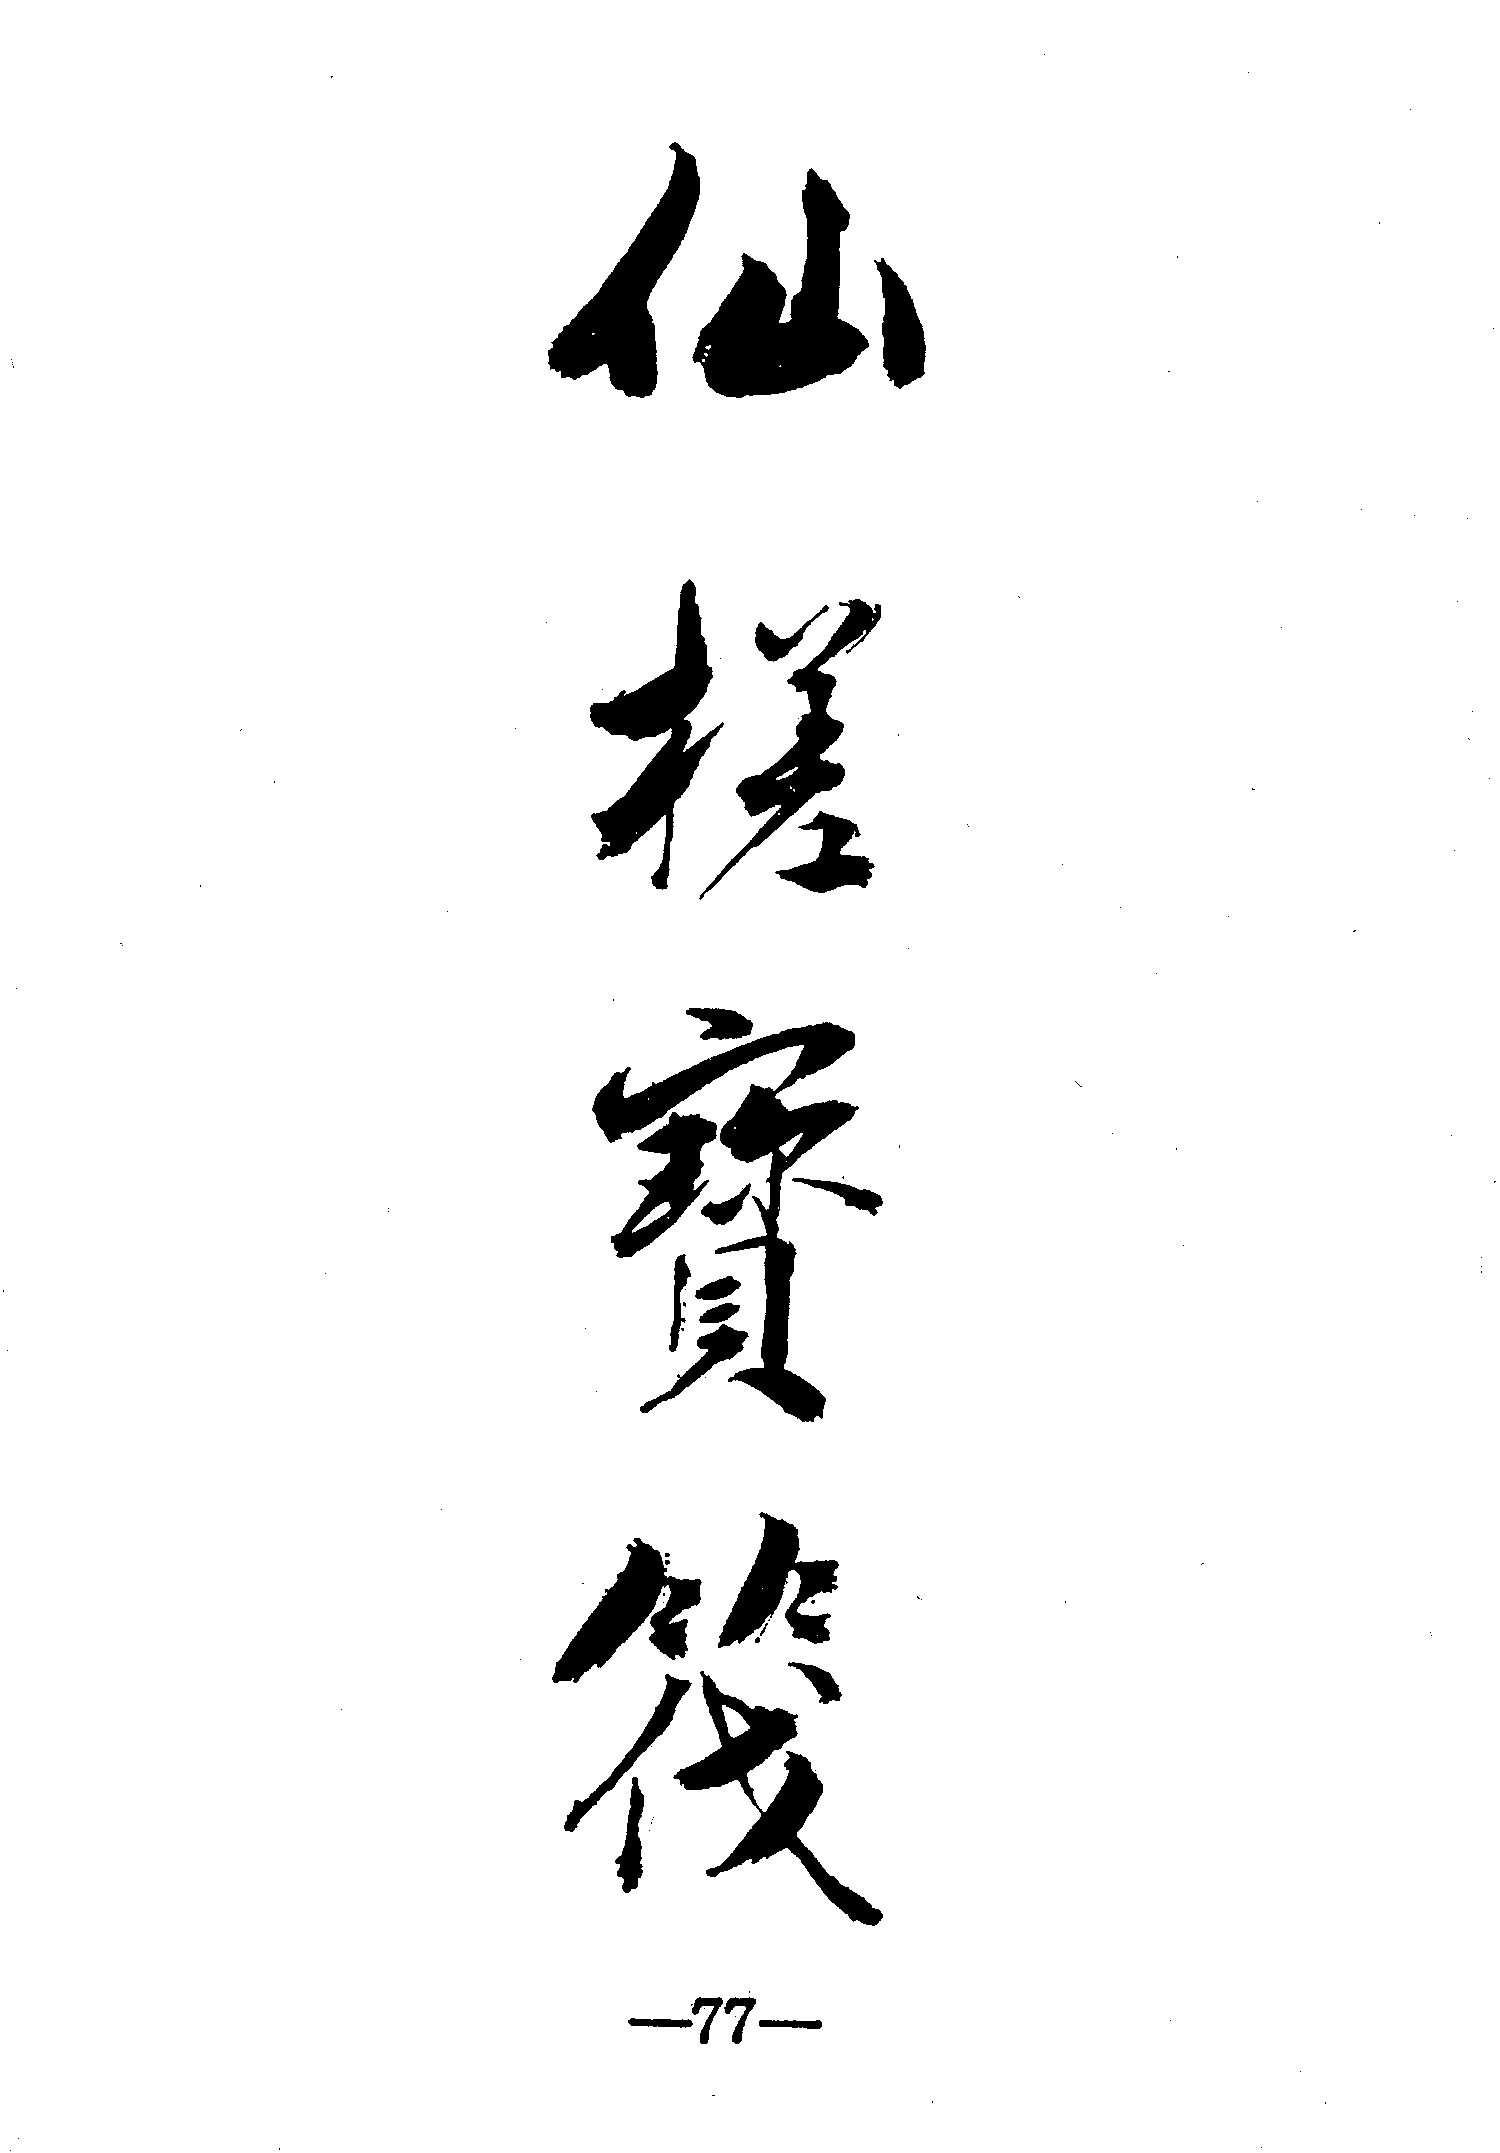 仙槎寶筏
—77—